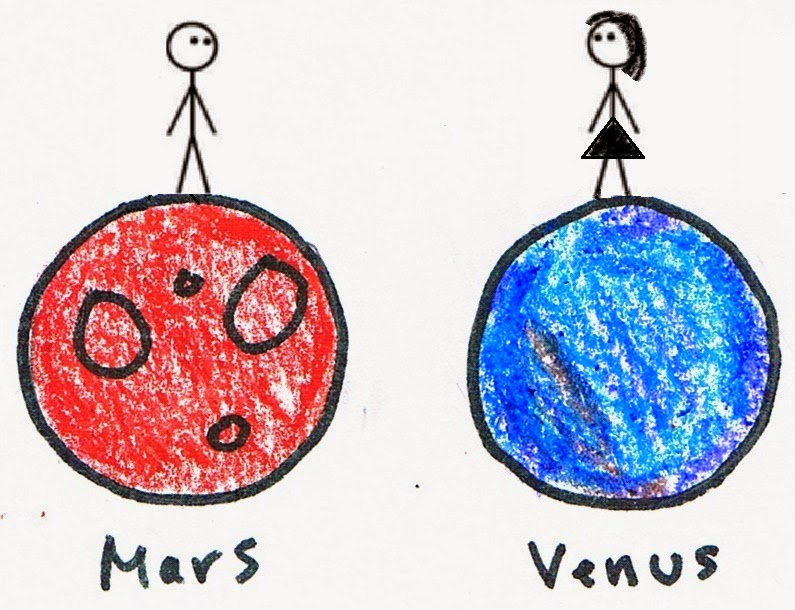 Mars
Venus